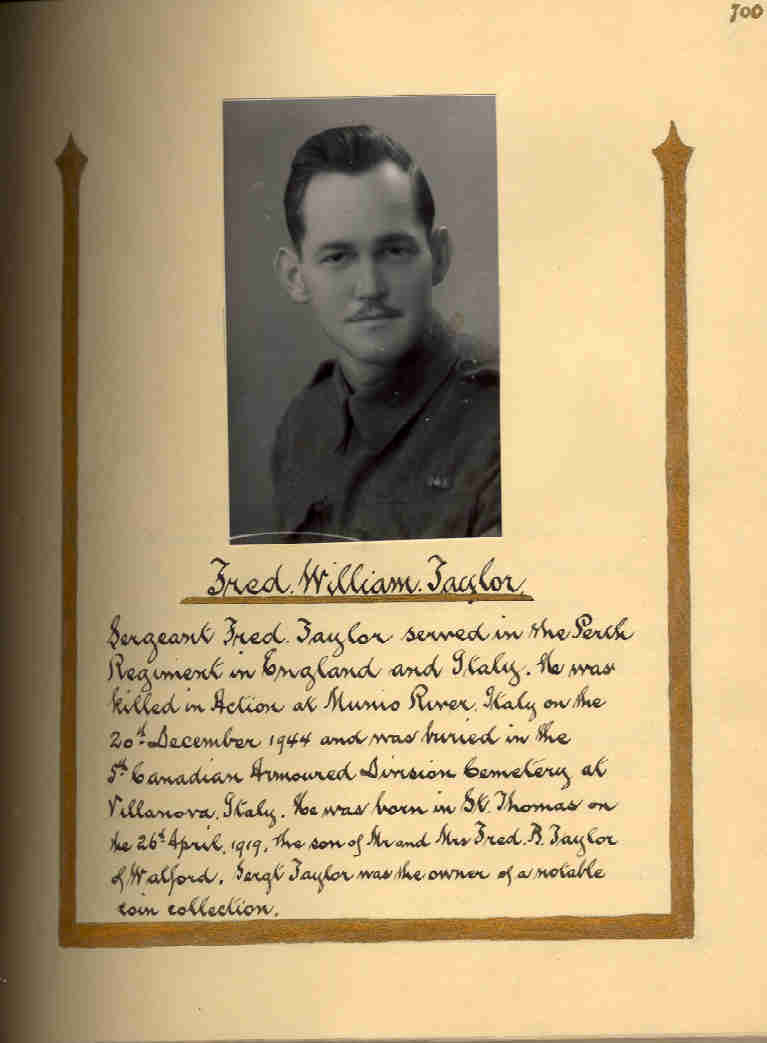 700
Fred. William. Taylor.
Sergeant Fred. Taylor served in the Perth
Regiment in England and Italy. He was
killed in Action at Munio River, Italy on the
20th December 1944 and was buried in the
5th Canadian Armoured Division Cemetery at
Villanova, Italy. He was born in St. Thomas on
the 26th April, 1919, the son of Mr and Mrs Fred. B. Taylor
of Walford. Sergt Taylor was the owner of a notable
coin collection.